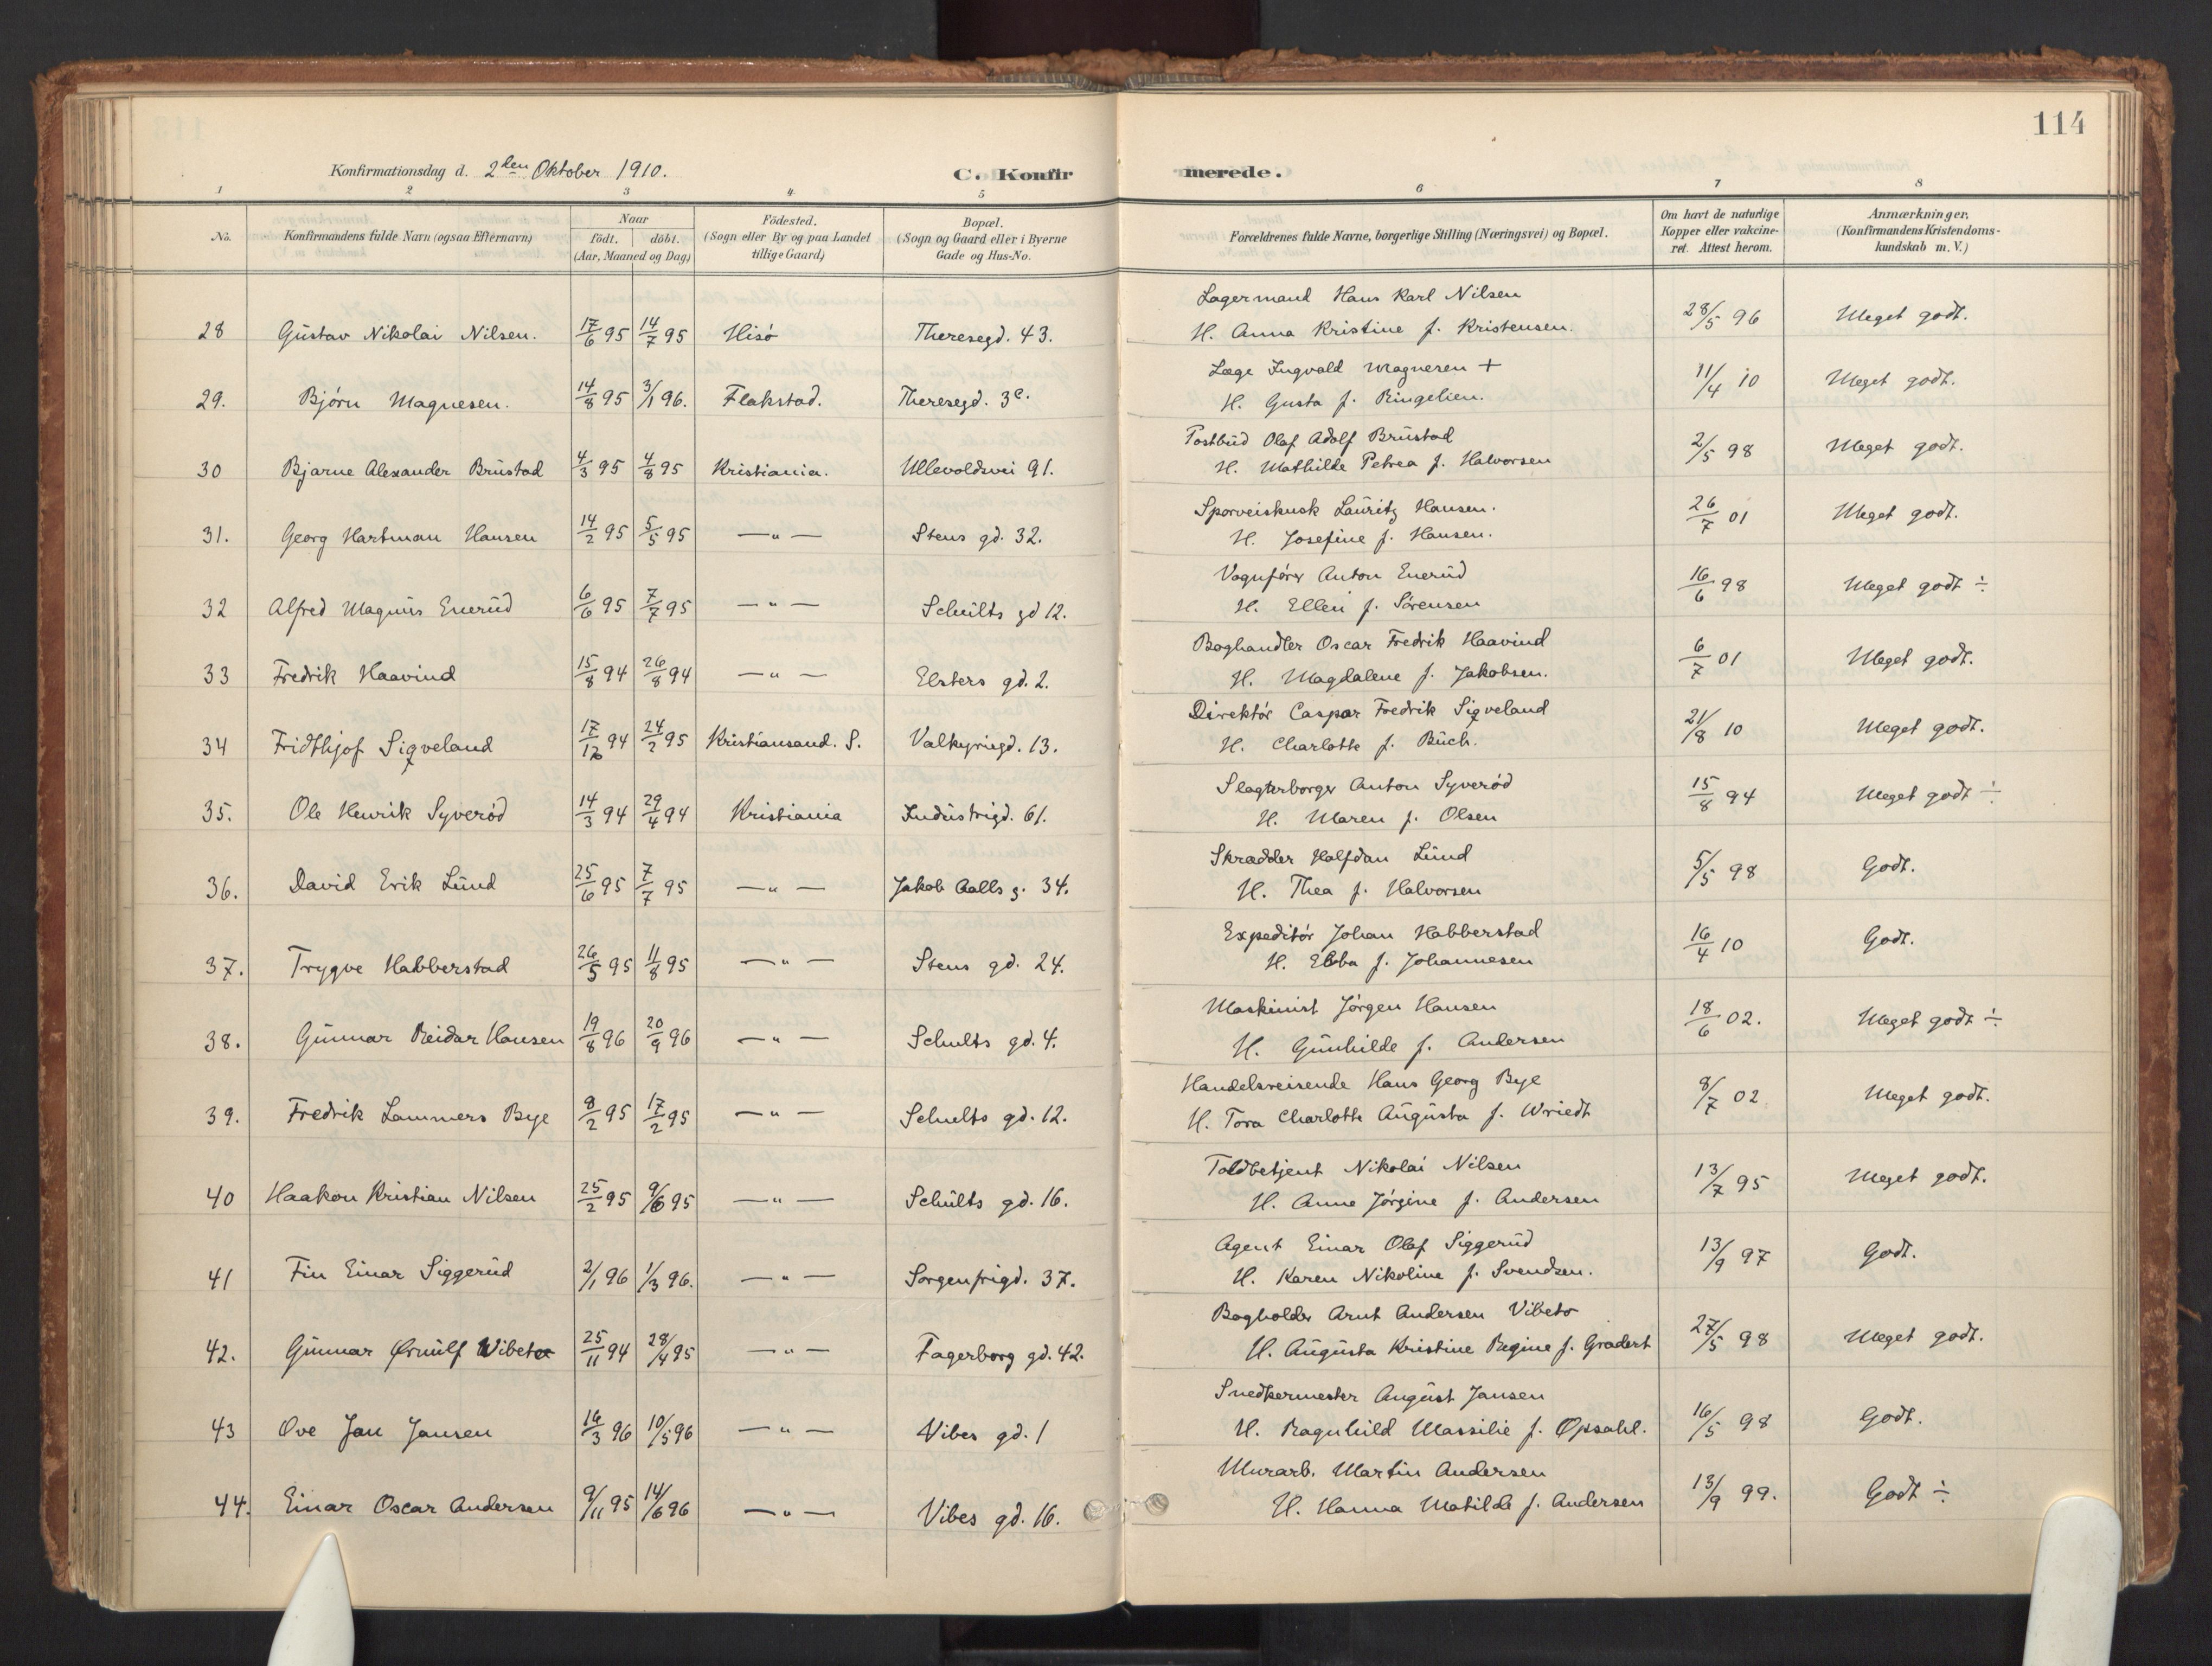 114
Konfirmationsdag d. 2den Oktober 1910.
C. Konfirmerede.
1 2 3 4 5 6 7 8
No. Konfirmandens fulde Navn (ogsaa Efternavn) Naar født. døbt. (Aar, Maaned og Dag) Fødested. (Sogn eller By og paa Landet tillige Gaard) Bopæl. (Sogn og Gaard eller i Byerne Gade og Hus-No. Forældrenes fulde Navne, borgerlige Stilling (Næringsvei) og Bopæl. Om havt de naturlige Kopper eller vakcineret. Attest herom. Anmærkninger. (Konfirmandens Kristendomskundskab m. V.)
28 Gustav Nikolai Nilsen. 17/6 95 14/7 95 Hisø Theresegd. 43. Lagermand Hans Karl Nilsen 28/5 96 Meget godt.
H. Anna Kristine f. Kristensen.
29. Bjørn Magnesen. 14/8 95 3/1 96. Flakstad. Theresegd. 3c. Læge Ingvald Magnesen + 11/4 10 Meget godt.
H. Gusta f. Ringelien.
30 Bjarne Alexander Brustad 4/3 95 4/8 95 Kristiania. Ullevoldsvei 91. Postbud Olaf Adolf Brustad 2/5 98 Meget godt.
H. Mathilde Petrea f. Halvorsen
31. Georg Hartman Hansen 14/2 95 5/5 95 — " — Stens gd. 32. Sporveiskusk Lauritz Hansen. 26/7 01 Meget godt.
H. Josefine f. Hansen.
32 Alfred Magnus Enerud 6/6 95 7/7 95 — " — Schults gd 12. Vognfører Anton Enerud 16/6 98 Meget godt ÷
H. Ellen f. Sørensen
33 Fredrik Haavind 15/8 94 26/8 94 — " — Elsters gd. 2. Boghandler Oscar Fredrik Haavind 6/7 01 Meget godt.
H. Magdalene f. Jakobsen.
34 Fridthjof Sigveland 17/12 94 24/2 95 Kristiansand. S. Valkyriegd. 13. Direktør Caspar Fredrik Sigveland 21/8 10 Meget godt.
H. Charlotte f. Buch.
35. Ole Henrik Syverød 14/3 94 29/4 94 Kristiania Industrigd. 61. Slagterborger Anton Syverød 15/8 94 Meget godt ÷
H. Maren f. Olsen
36. David Erik Lund 25/6 95 7/7 95 — " — Jakob Aalls g. 34. Skrædder Halfdan Lund 5/5 98 Godt.
H. Thea f. Halvorsen
37. Trygve Habberstad 26/5 95 11/8 95 — " — Stens gd. 24. Expeditør Johan Habberstad 16/4 10 Godt.
H. Ebba f. Johannesen
38. Gunnar Reidar Hansen 19/8 96 20/9 96 — " — Schults gd. 4. Maskinist Jørgen Hansen 18/6 02. Meget godt ÷
H. Gunhilde f. Andersen
39. Fredrik Lammers Bye 8/2 95 17/2 95 — " — Schults gd. 12. Handelsreisende Hans Georg Bye 8/7 02 Meget godt.
H. Tora Charlotte Augusta f. Wriedt
40 Haakon Kristian Nilsen 25/2 95 9/6 95 — " — Schults gd. 16. Toldbetjent Nikolai Nilsen 13/7 95 Meget godt.
H. Anne Jørgine f. Andersen
41 Fin Einar Siggerud 2/1 96 1/3 96. — " — Sorgenfrigd. 37. Agent Einar Olaf Siggerud 13/9 97 Godt.
H. Karen Nikoline f. Svendsen.
42. Gunnar Ørnulf Vibeto 25/11 94 28/4 95 — " — Fagerborg gd. 42. Bogholder Arnt Andersen Vibeto 27/5 98 Meget godt.
H. Augusta Kristine Regine f. Gradert
43 Ove Jan Jansen 16/3 96 10/5 96 — " — Vibes gd. 1 Snedkermester August Jansen 16/5 98 Godt.
H. Ragnhild Massilie f. Opsahl.
44. Einar Oscar Andersen 9/11 95 14/6 96 — " — Vibes gd. 16. Murarb. Martin Andersen 13/9 99. Godt ÷
H. Hanna Matilde f. Andersen